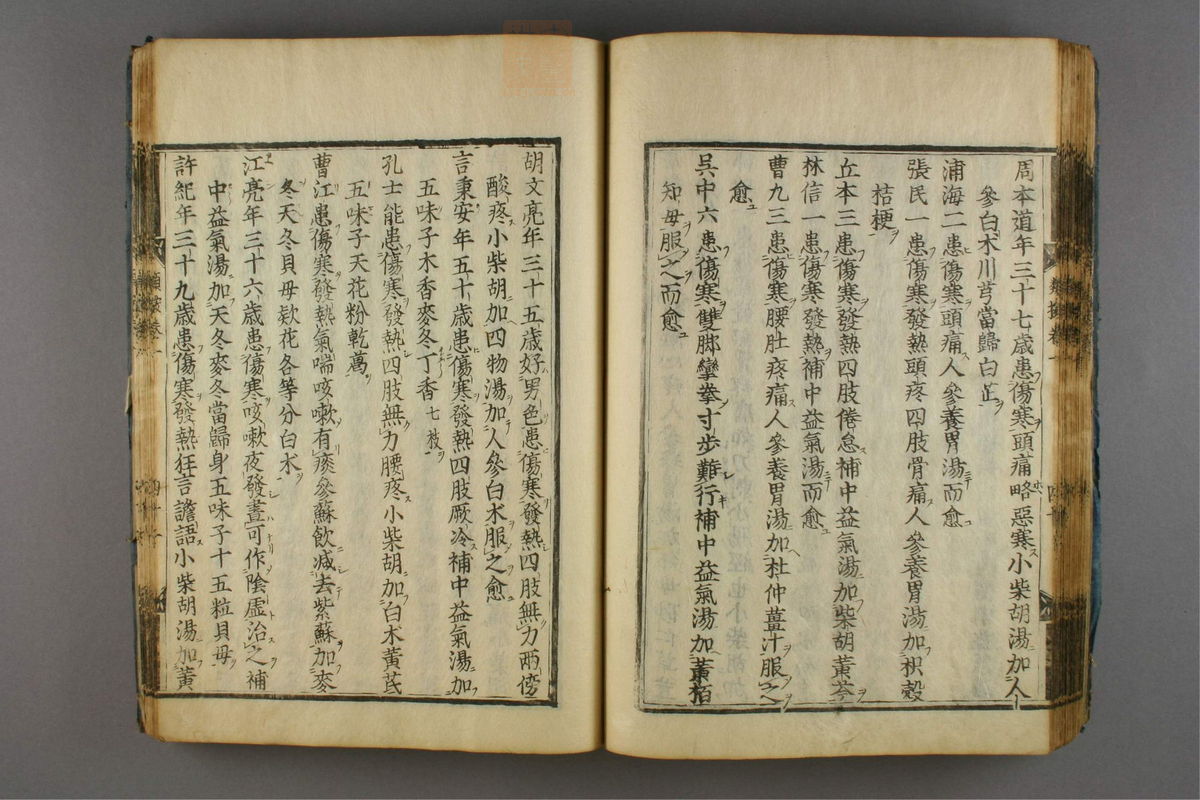 周本道年三十七歲患傷寒頭痛略惡寒小柴胡湯加人
參白朮川芎當歸白芷
浦海二患傷寒頭痛人參養胃湯而愈
張民一患傷寒發熱頭疼四肢骨痛人參養胃湯加枳殼
桔梗
丘本三患傷寒發熱四肢倦怠補中益氣湯加柴胡黃芩
林信一患傷寒發熱補中益氣湯而愈
曹九三患傷寒腰肚疼痛人參養胃湯加杜仲薑汁服之
愈
吳中六患傷寒雙脚攣拳寸步難行補中益氣湯加黃栢
知母服之而愈
胡文亮年三十五歲好男色患傷寒發熱四肢無力兩傍
酸疼小柴胡加四物湯加人參白朮服之愈
言秉安年五十歲患傷寒發熱四肢厥冷補中益氣湯加
五味子木香麥冬丁香七枝
孔士能患傷寒發熱四肢無力腰疼小柴胡加白朮黃芪
五味子天花粉乾葛
曹江患傷寒發熱氣喘咳嗽有痰參蘇飲減去紫蘇加麥
冬天冬貝母欵花各等分白朮
江亮年三十六歲患傷寒咳嗽夜發晝可作陰虛治之補
中益氣湯加天冬麥冬當歸身五味子十五粒貝母
許紀年三十九歲患傷寒發熱狂言譫語小柴胡湯加黃